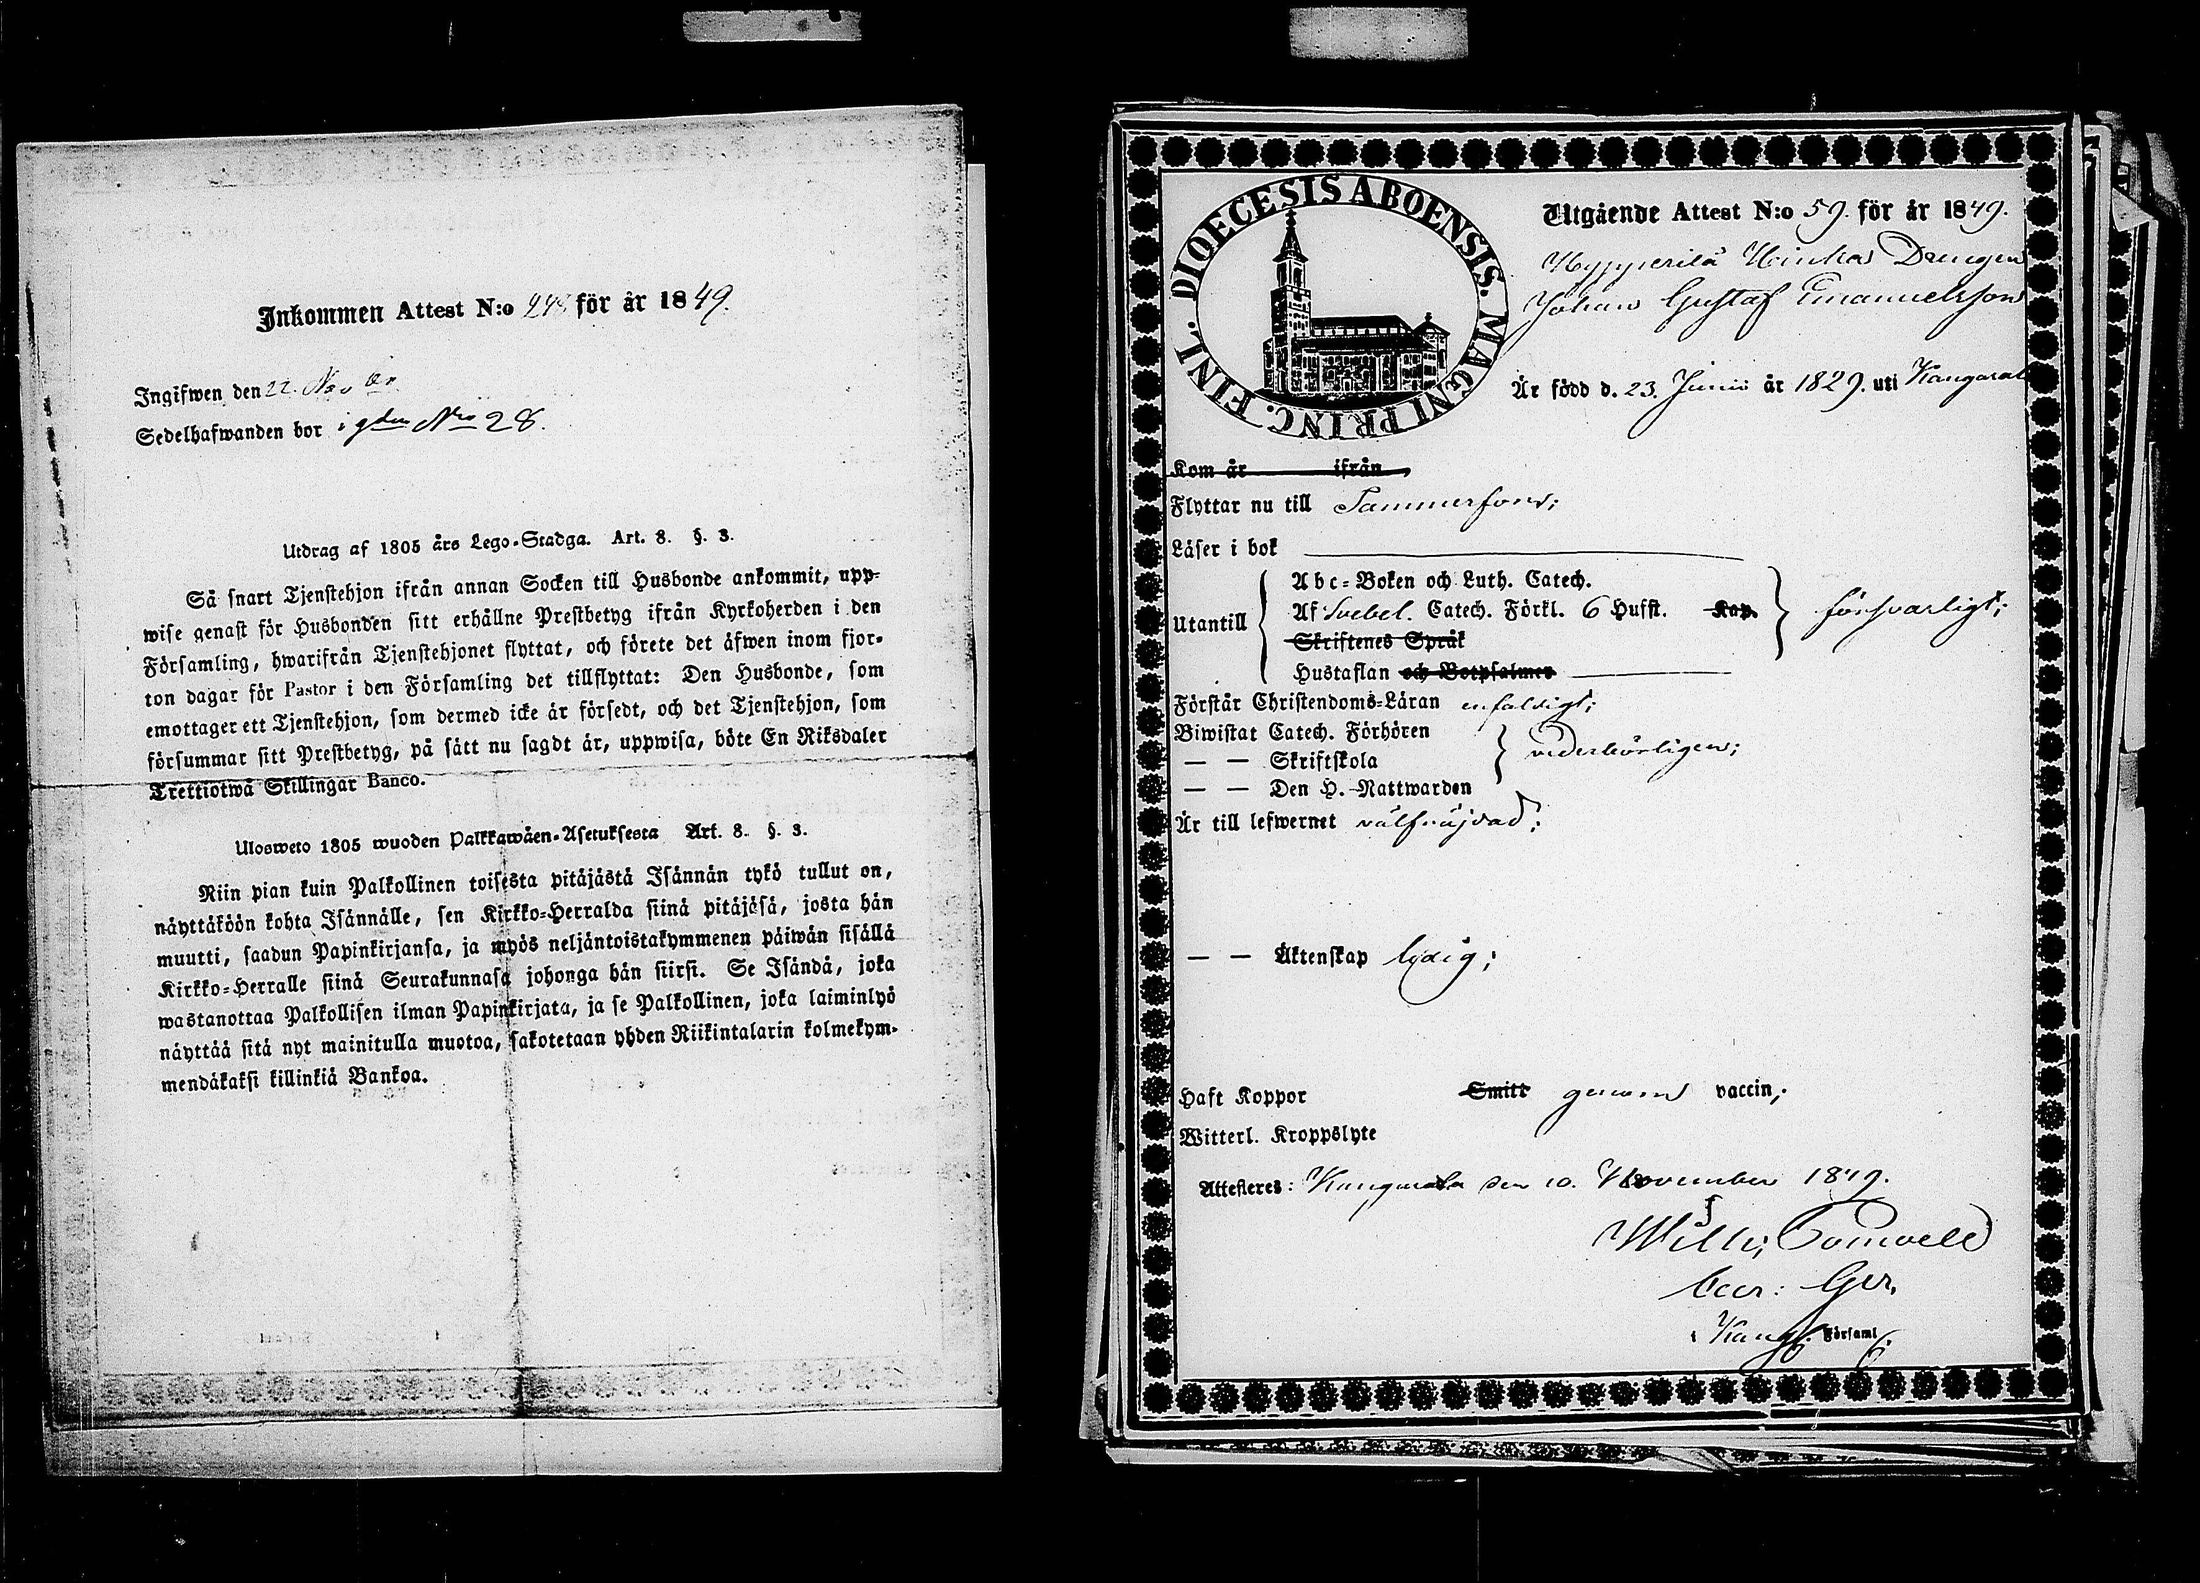 Inkommen Attest N:o 248 för år 1849.
Ingifwen den 22. Nov
Sedelhafwanden bor i gden Nro 28.
Utdrag af 1805 års Lego-Stadga. Art. 8. §. 3.
Så snart Tjenstehjon ifrån annan Socken till Husbonde ankommit, upp-
wise genast för Husbonden sitt erhållne Prestbetyg ifrån Kyrkoherden i den
Församling, hwarifrån Tjenstehjonet flyttat, och förete det äfwen inom fjor-
ton dagar för Pastor i den Församling det tillflyttat: Den Husbonde, som
emottager ett Tjenstehjon, som dermed icke är försedt, och det Tjenstehjon, som
försummar sitt Prestbetyg, på sätt nu sagdt är, uppwisa, böte En Riksdaler
Trettiotwå Skillingar Banco.
Ulosweto 1805 wuoden Palkkawäen-Asetuksesta Art. 8. §. 3.
Niin pian kuin Palkollinen toisesta pitäjästä Isännän tykö tullut on,
näyttäköön kohta Isännälle, sen Kirkko-Herralda siinä pitäjäsä, josta hän
muutti, saadun Papinkirjansa, ja myös neljäntoistakymmenen päiwän sisällä
Kirkko-Herralle siinä Seurakunnasa johonga hän siirsi. Se Isändä, joka
wastanottaa Palkollisen ilman Papinkirjata, ja se Palkollinen, joka laiminlyö
näyttää sitä nyt mainitulla muotoa, sakotetaan yhden Riikintalarin kolmekym-
mendäkaksi killinkiä Bankoa.
DIOECESIS ABOENSIS. MAGNI PRINC. FINL.
Utgående Attest N:o 59. för år 1849.
Drengen
Johan Gustaf Emanuelsson
Är född d. 23. Junii år 1829. uti Kangasal
Kom år ifrån
Flyttar nu till Tammerfors;
Läser i bok
Utantill
Abc-Boken och Luth. Catech.
Af Svebel. Catech. Förkl. 6 Hufst. Kap. försvarligt;
Skriftenes Språk
Hustaflan och Botpsalmer
Förstår Christendoms-Läran enfaldigt;
Biwistat Catech. Förhören
— — Skriftskola vederbörligen;
— — Den H. Nattwarden
Är till lefwernet välfrejdad;
— — Äktenskap ledig;
Haft Koppor Smitt genom vaccin;
Witterl. Kroppslyte
Attesteres: Kangasala den 10. November 1849.
i Kangs. Församl.